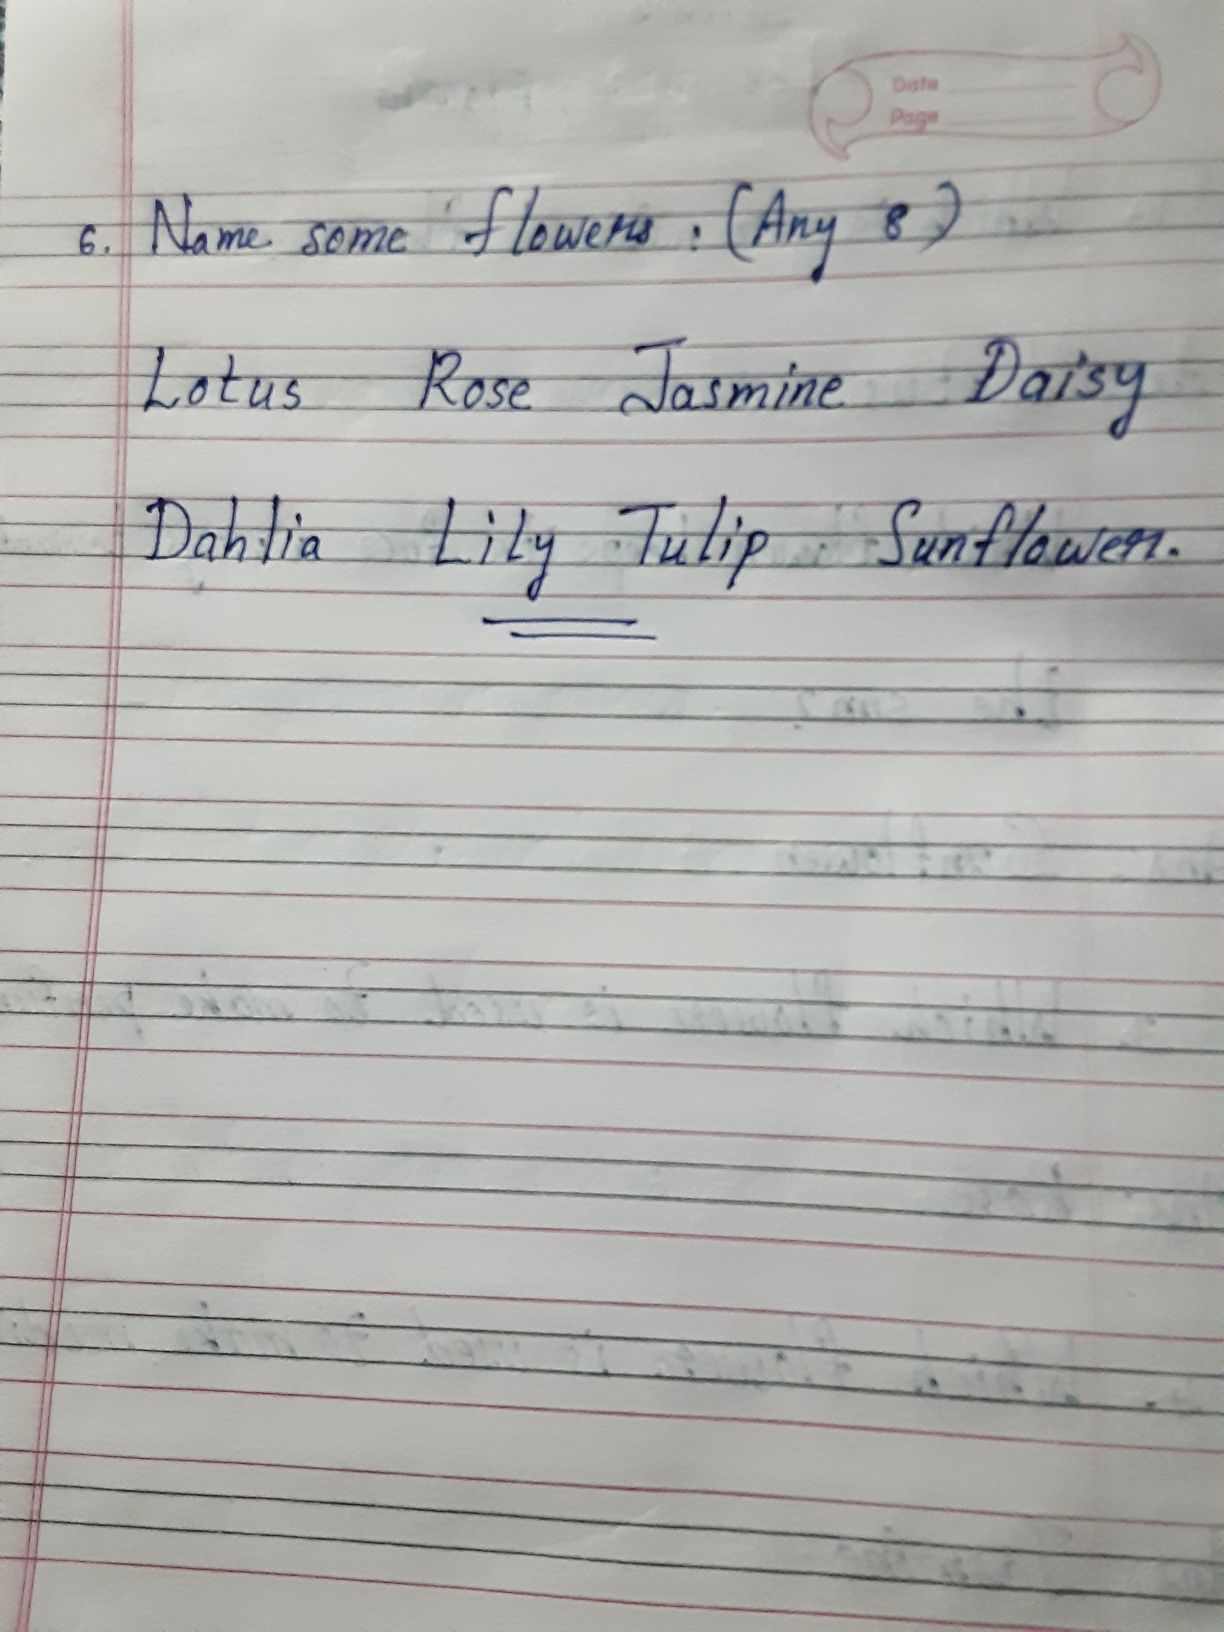 Date
Page
6. Name some flowers : (Any 8)
Lotus Rose Jasmine Daisy
Dahlia Lily Tulip Sunflower.